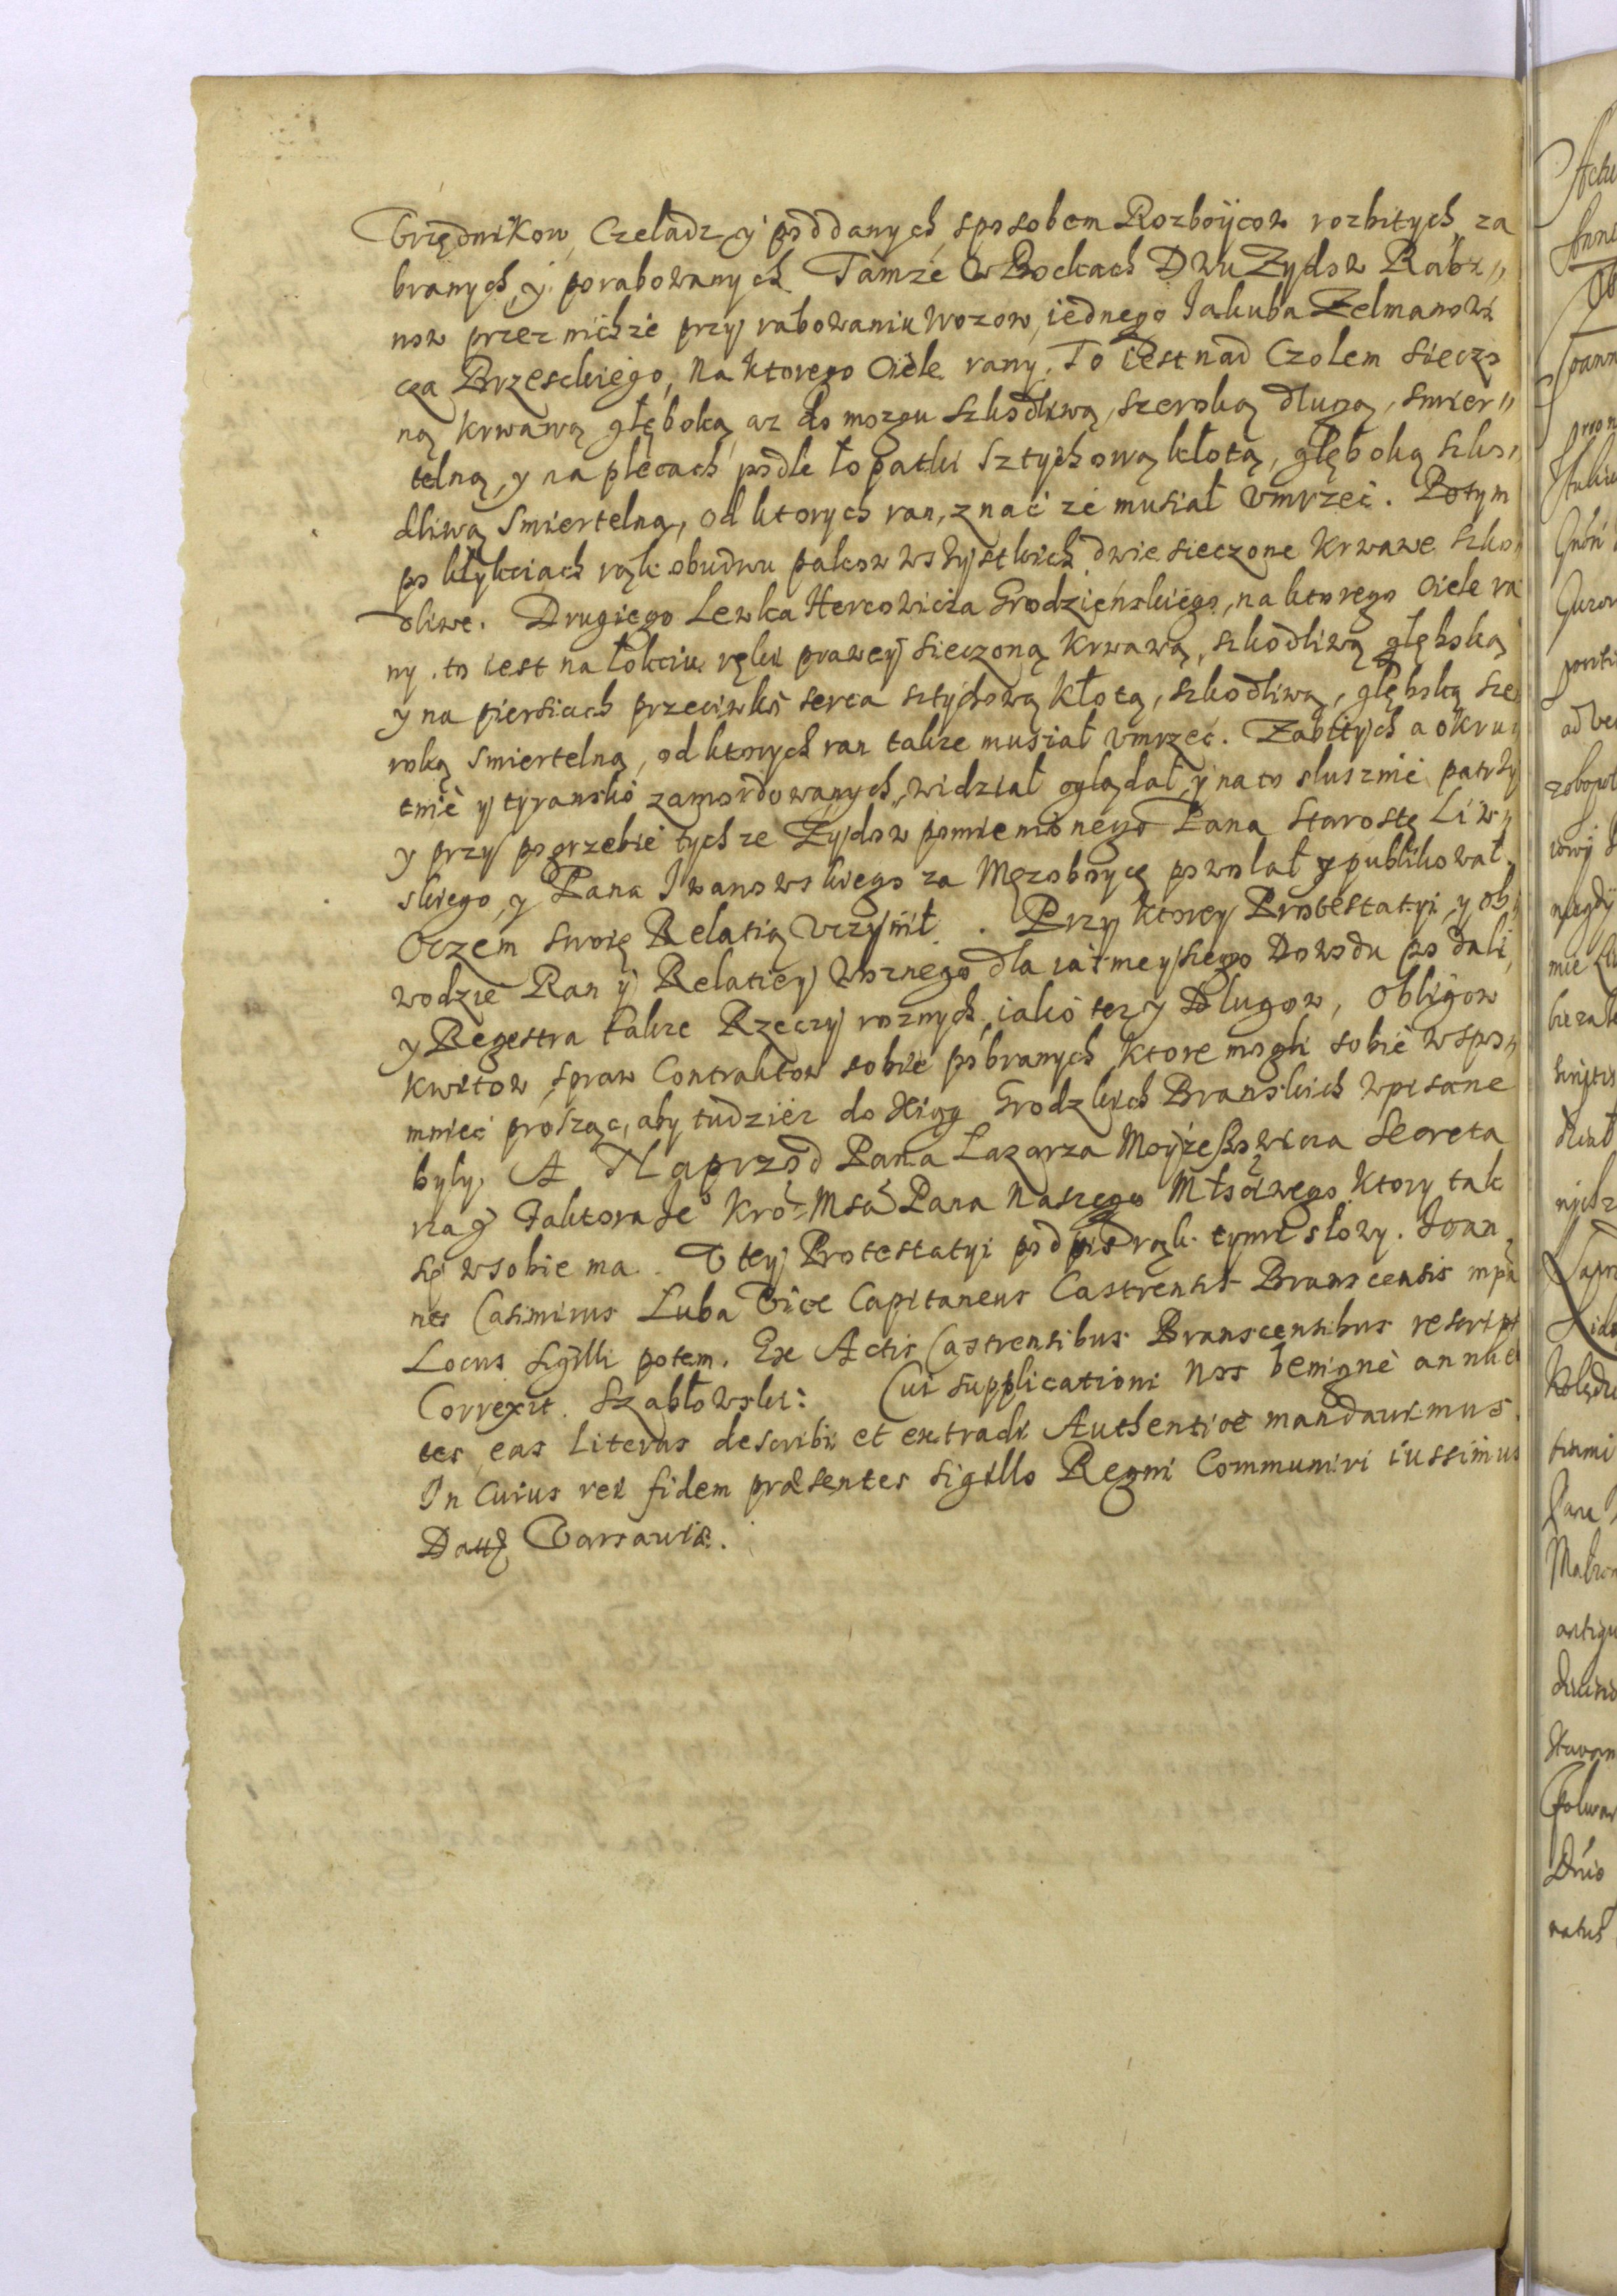 Vrzędnikow, Czeladz y poddanych, sposobem Rozboÿcow rozbitych za
branych, y porabowanych. Tamze w Bockach Dwu Zydow Rabi„
now przez nichze przy rabowaniu wozow, iednego Jakuba Zelmanowi
cza Brzesckiego, na ktorego Ciele rany. To iest nad Czolem sieczo
ną krwawą głęboką az do mozgu szkodliwą, szeroką długą, smier„
telną, y na plecach podle łopatki sztychową kłotą, głęboką szko„
dliwą smiertelną, od ktorych ran, znać ze musiał vmrzeć. Potym
po kłykciach rąk obudwu palcow wszystkich dwie sieczone krwawe szko„
dliwe. Drugiego Lewka Hercowicza Grodzieńskiego, na ktorego Ciele ra
ny. to iest na łokciu ręki prawey sieczoną krwawą, szkodliwą głęboką
y na piersiach przeciwko serca sztychową kłotą, szkodliwą, głęboką sze
roką smiertelną, od ktorych ran takze musiał vmrzeć. Zabitych a okru„
tnie y tyransko zamordowanych, widział oglądał, y na to slusznie patrzył
y przy pogrzebie tychze Zydow pomienionego Pana Starostę Liw„
skiego, y Pana Iwanowskiego za Męzoboycę powołał y publikował,
Oczem swoię Relatią vczynił. Przy ktorey Protestatyi, y ob„
wodzie Ran y Relaciey Woznego dla iasnieyszego Dowodu podali,
y Regestra takze Rzeczy roznych, iako tez y Dlugow, Obligow
kwitow, spraw Contraktow sobie pobranych, ktore mogli sobie wspo„
mnieć prosząc, aby tudziez do Xiąg Grodzkich Branskich wpisane
były. A Naprzod Pana Lazarza Moyzeszowicza Secreta
rza y Faktora Je° Kro: Msci Pana Naszego Młsciwego ktory tak
się w sobie ma. V tey Protestatyi podpis rąk tymi słowy. Joan„
nes Casimirus Luba Vice Capitaneus Castrensis Branscensis mpa
Locus Sigilli potem. Ex Actis Castrensibus Branscensibus rescript
Correxit. Szabłowski: Cui supplicationi Nos benignè annuen
tes, eas Literas describi et extradi Authenticè mandauimus.
In Cuius rei fidem præsentes sigillo Regni Communiri iussimus
Datt Varsauiæ.